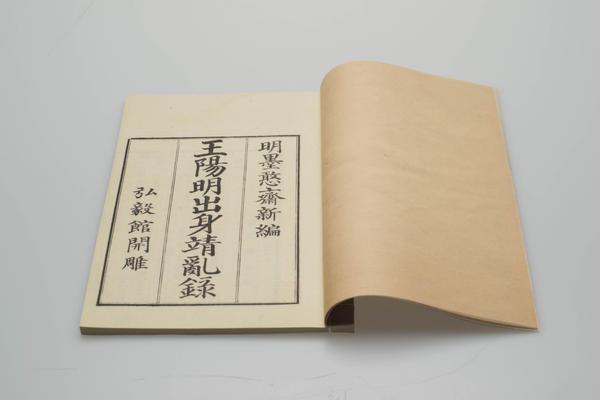 明墨憨齋新編
王陽明出身靖亂録
弘毅館開雕